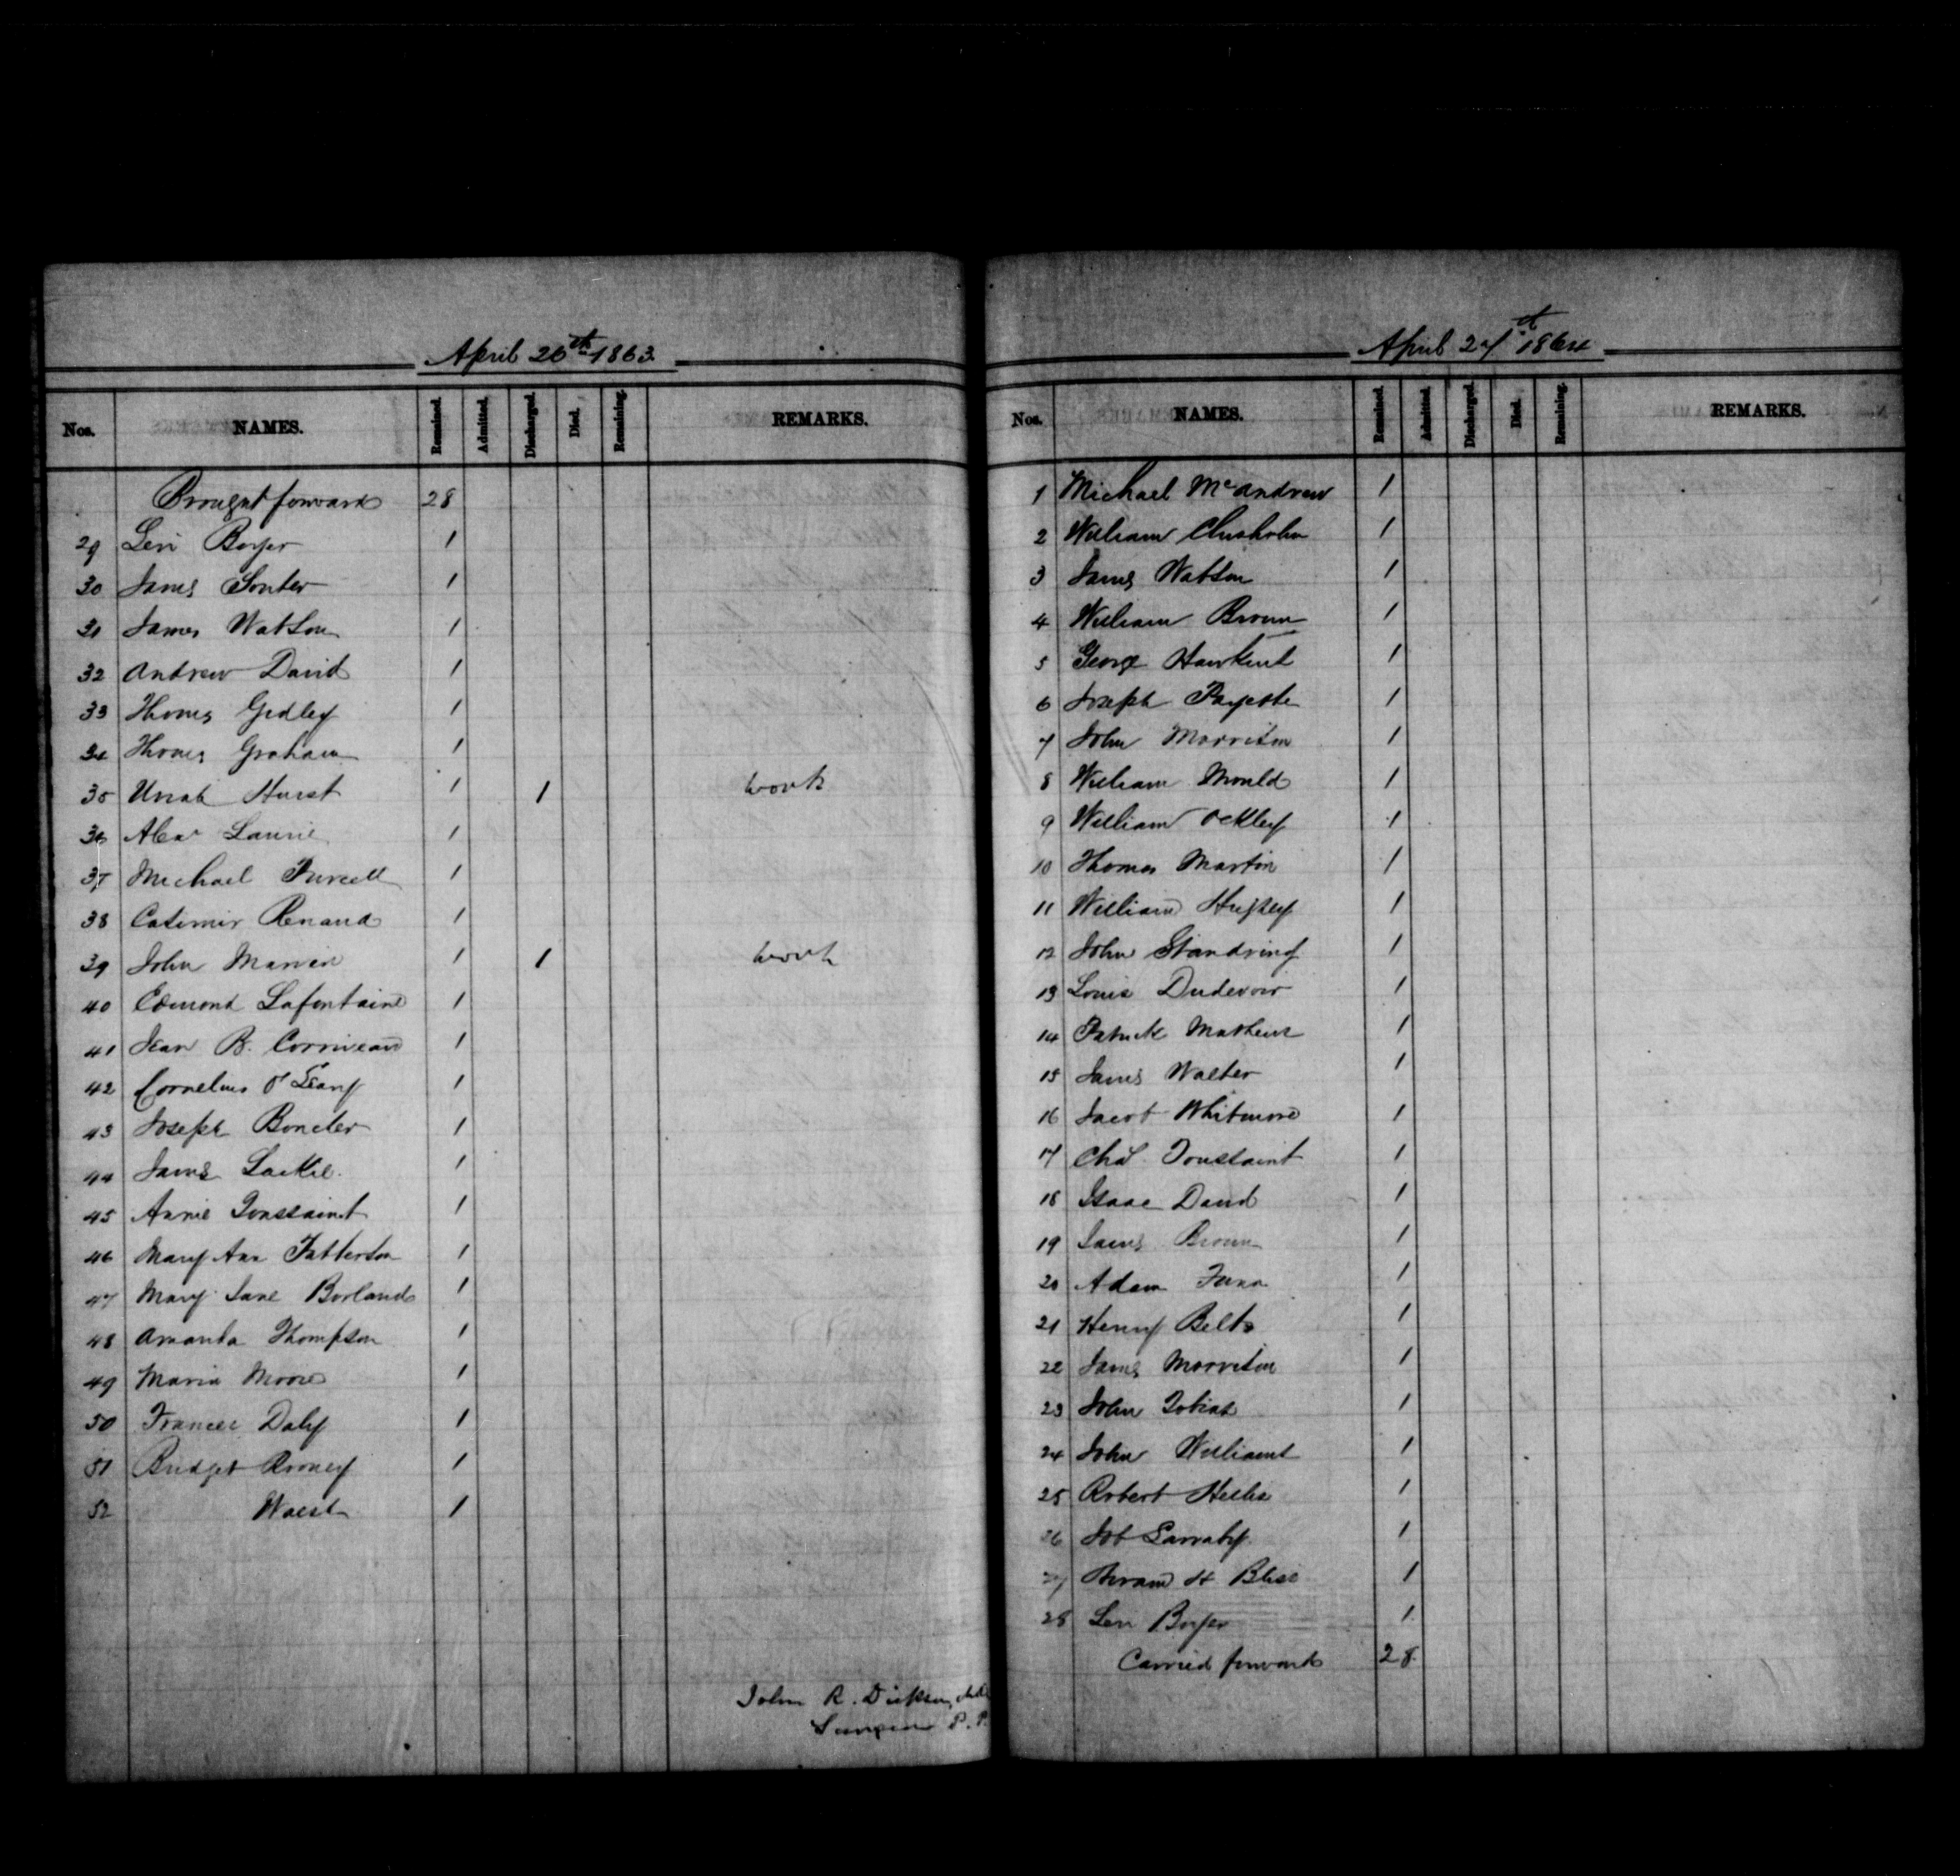 April 26th 1863.
Nos. NAMES. Remained. Admitted. Discharged. Died. Remaining. REMARKS.
Brought forward 28
29 Levi Boyer 1
30 James Souter 1
31 James Watson 1
32 Andrew David 1
33 Thomas Gedley 1
34 Thomas Graham 1
35 Uriah Hurst 1 1 work
36 Alexr Laurie 1
37 Michael Purcell 1
38 Casimir Renaud 1
39 John Marvin 1 1 work
40 Edmond Lafontaine 1
41 Jean B. Corriveau 1
42 Cornelius O'Leary 1
43 Joseph Boncler 1
44 James Lackie. 1
45 Annie Toussaint 1
46 Mary Ann Patterson 1
47 Mary Jane Borland 1
48 Amanda Thompson 1
49 Maria Moore 1
50 Frances Daly 1
51 Bridget Rooney 1
52 Waist 1
John R. Dickson, M.D.
Surgeon P. P.
April 27th 1864
Nos. NAMES. Remained. Admitted. Discharged. Died. Remaining. REMARKS.
1 Michael McAndrew 1
2 William Chisholm 1
3 James Watson 1
4 William Brown 1
5 George Hawkins 1
6 Joseph Payette 1
7 John Morrison 1
8 William Mould 1
9 William Ockley 1
10 Thomas Martin 1
11 William Hughey 1
12 John Standring 1
13 Louis Dudevoir 1
14 Patrick Mathews 1
15 James Walter 1
16 Jacob Whitmore 1
17 Chas. Toussaint 1
18 Isaac David 1
19 James Brown 1
20 Adam Fann 1
21 Henry Belts 1
22 James Morrison 1
23 John Tobias 1
24 John Williams 1
25 Robert Hellis 1
26 Job Larraby 1
27 Hiram H Bliss 1
28 Levi Boyer 1
Carried forward 28.